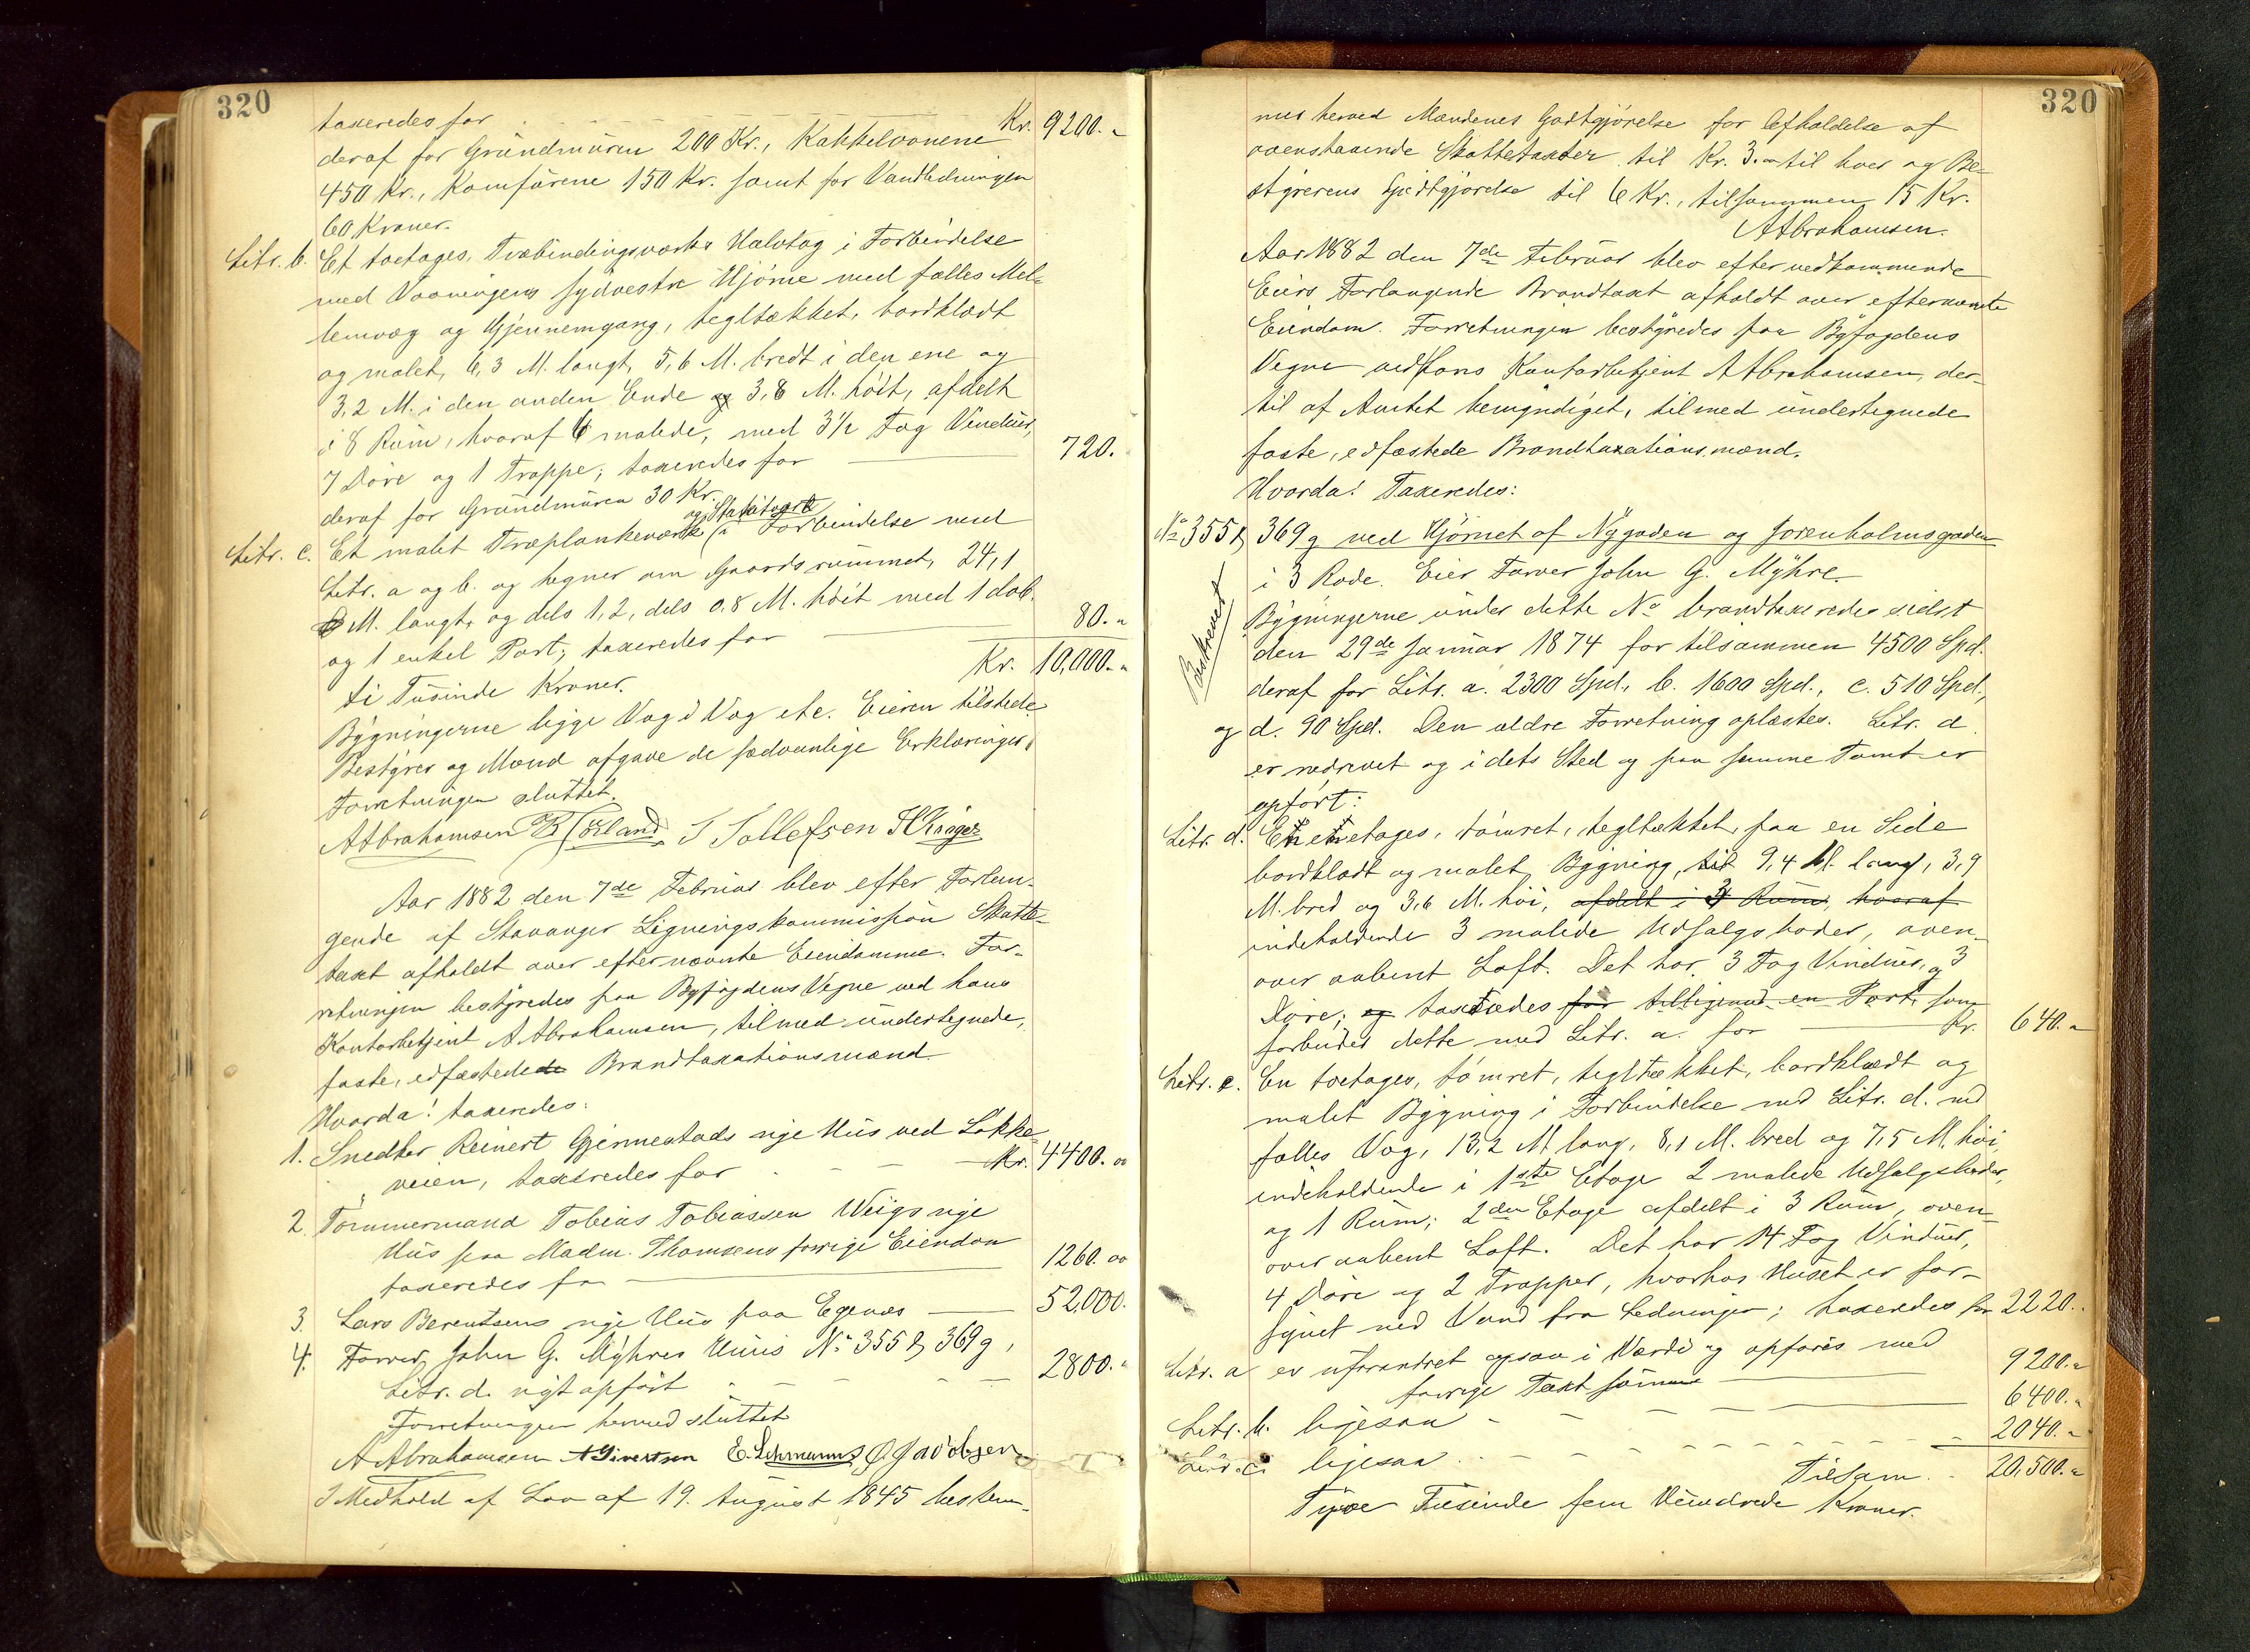 320
taxeredes for Kr. 9200.-
deraf for Grundmuren 200 Kr., Kakkelovnene
450 Kr., Komfurene 150 Kr. samt for Vandledningen
60 Kroner.
Litr. b. Et toetages, Træbindingsværks Halvtag i Forbindelse
med Vaaningens sydvestre Hjørne med fælles Mel-
lemvæg og Gjennemgang, tegltækket, bordklædt
og malet, 6,3 M. langt, 5,6 M. bredt i den ene og
3,2 M. i den anden Ende og 3,8 M. høit, afdelt
i 8 Rum, hvoraf 6 malede, med 3½ Fag Vinduer,
7 Døre og 1 Trappe; taxeredes for 720.
deraf for Grundmuren 30 Kr.
Litr. c. Et malet Træplankeværk og Stakitværk i Forbindelse med
Litr. a og b. og tegner om Gaardsrummet, 24,1
M. langt, og dels 1,2, dels 0,8 M. høit med 1 dob.
og 1 enkel Port; taxeredes for 80.-
Kr. 10,000.-
ti Tusinde Kroner.
Bygningerne ligge Væg i Væg etc. Eieren tilstede.
Bestyrer og Mænd afgave de sædvanlige Erklæringer.
Forretningen sluttet.
A Abrahamsen T Tollefsen
Aar 1882 den 7de Februar blev efter Forlan-
gende af Stavanger Ligningskommission Skatte-
taxt afholdt over efternævnte Eiendomme. For-
retningen bestyredes paa Byfogdens Vegne ved hans
Kontorbetjent A Abrahamsen, tilmed undertegnede,
faste, edfæstede Brandtaxationsmænd.
Hvorda! taxeredes:
1. Snedker Reinert Gjermestads nye Hus ved Løkke-
veien, taxeredes for Kr. 4400.00
2. Tømmermand Tobias Tobiassen Weigs nye
Hus paa Madm. Thomsens forrige Eiendom
taxeredes for 1260.00
3. Lars Berentsens nye Hus paa Egenæs 52,000.
4. Farver John G. Myhres Huus No 355 & 369g,
Litr. d. nyt opført 2800.-
Forretningen hermed sluttet
A Abrahamsen A Sivertsen E. Lehmann Ø. Jacobsen
I Medhold af Lov af 19. August 1845 bestem-
320
mes herved Mændenes Godtgjørelse for Afholdelse af
ovenstaaende Skattetaxter til Kr. 3.00 til hver og Be-
styrerens Godtgjørelse til 6 Kr., tilsammen 15 Kr.
A Abrahamsen.
Aar 1882 den 7de Februar blev efter vedkommende
Eiers Forlangende Brandtaxt afholdt over efternævnte
Eiendom. Forretningen bestyredes paa Byfogdens
Vegne ved hans Kontorbetjent A Abrahamsen, der-
til af Amtet bemyndiget, tilmed undertegnede
faste, edfæstede Brandtaxationsmænd.
Hvorda! Taxeredes:
No 355 & 369g ved Hjørnet af Nygaden og Jorenholmsgaden
i 3 Rode. Eier Farver John G. Myhre.
Beskrevet
Bygningerne under dette No brandtaxeredes sidst
den 29de Januar 1874 for tilsammen 4500 Spd.
deraf for Litr. a. 2300 Spd., b. 1600 Spd., c. 510 Spd.,
og d. 90 Spd. Den ældre Forretning oplæstes. Litr. d
er nedrevet og i dets Sted og paa samme Tomt er
opført:
Litr. d. En enetages, tømret, tegltækket, paa en Side
bordklædt og malet Bygning, 9,4 M. lang, 3,9
M. bred og 3,6 M. høi, afdelt i 3 Rum, hvoraf
indeholdende 3 malede Udsalgsboder, oven-
over aabent Loft. Det har 3 Fag Vinduer, og 3
Døre; og taxeredes for tilligemed en Port, som
forbinder dette med Litr. a. for Kr. 640.-
Litr. e. En toetages, tømret, tegltækket, bordklædt og
malet Bygning i Forbindelse med Litr. d. med
fælles Væg, 13,2 M lang, 8,1 M. bred og 7,5 M. høi,
indeholdende i 1ste Etage 2 malede Udsalgsboder,
og 1 Rum; 2den Etage afdelt i 3 Rum, oven-
over aabent Loft. Det har 14 Fag Vinduer,
4 Døre og 2 Trapper, hvorhos Huset er for-
synet med Vand fra Ledningen; taxeredes for 2220.-
Litr. a er uforandret ogsaa i Værdi og opføres med
forrige Taxt sum 9200.-
Litr. b. ligesaa 6400.-
Litr. c. ligesaa 2040.-
Tilsam. 20,500.-
Tyve Tusinde fem Hundrede Kroner.